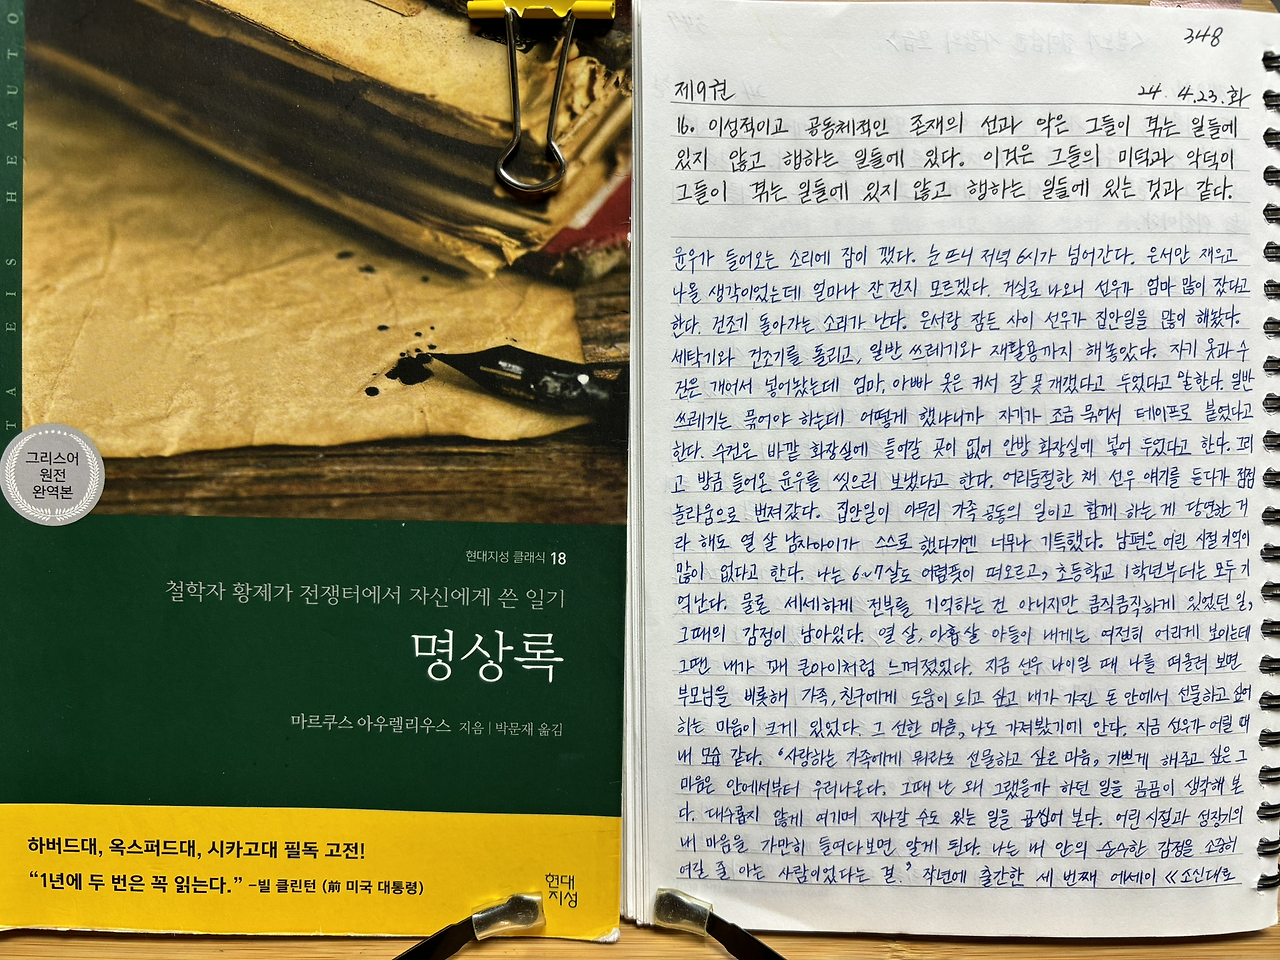 TA EIS HEAUTO
그리스어
원전
완역본
현대지성 클래식 18
철학자 황제가 전쟁터에서 자신에게 쓴 일기
명상록
마르쿠스 아우렐리우스 지음 | 박문재 옮김
하버드대, 옥스퍼드대, 시카고대 필독 고전!
“1년에 두 번은 꼭 읽는다.” –빌 클린턴 (前 미국 대통령)
현대
지성
348
제9권 24. 4.23.화
16. 이성적이고 공동체적인 존재의 선과 악은 그들이 겪는 일들에
있지 않고 행하는 일들에 있다. 이것은 그들의 미덕과 악덕이
그들이 겪는 일들에 있지 않고 행하는 일들에 있는 것과 같다.
윤우가 들어오는 소리에 잠이 깼다. 눈 뜨니 저녁 6시가 넘어간다. 은서만 재우고
나올 생각이었는데 얼마나 잔 건지 모르겠다. 거실로 나오니 선우가 엄마 많이 잤다고
한다. 건조기 돌아가는 소리가 난다. 은서랑 잠든 사이 선우가 집안일을 많이 해놨다.
세탁기와 건조기를 돌리고, 일반 쓰레기와 재활용까지 해놓았다. 자기 옷과 수
건은 개어서 넣어놨는데 엄마, 아빠 옷은 커서 잘 못 개겠다고 두었다고 말한다. 일반
쓰레기는 묶어야 하는데 어떻게 했냐니까 자기가 조금 묶어서 테이프로 붙였다고
한다. 수건은 바깥 화장실에 들어갈 곳이 없어 안방 화장실에 넣어 두었다고 한다. 그리
고 방금 들어온 윤우를 씻으러 보냈다고 한다. 어리둥절한 채 선우 얘기를 듣다가 점점
놀라움으로 번져갔다. 집안일이 아무리 가족 공동의 일이고 함께 하는 게 당연한 거
라 해도 열 살 남자아이가 스스로 했다기엔 너무나 기특했다. 남편은 어린 시절 기억이
많이 없다고 한다. 나는 6~7살도 어렴풋이 떠오르고, 초등학교 1학년부터는 모두 기
억난다. 물론 세세하게 전부를 기억하는 건 아니지만 큼직큼직하게 있었던 일,
그때의 감정이 남아있다. 열 살, 아홉 살 아들이 내게는 여전히 어리게 보이는데
그땐 내가 꽤 큰아이처럼 느껴졌었다. 지금 선우 나이일 때 나를 떠올려 보면
부모님을 비롯해 가족, 친구에게 도움이 되고 싶고 내가 가진 돈 안에서 선물하고 싶어
하는 마음이 크게 있었다. 그 선한 마음, 나도 가져봤기에 안다. 지금 선우가 어릴 때
내 모습 같다. ‘사랑하는 가족에게 뭐라도 선물하고 싶은 마음, 기쁘게 해주고 싶은 그
마음은 안에서부터 우러나온다. 그때 난 왜 그랬을까 하던 일을 곰곰이 생각해 본
다. 대수롭지 않게 여기며 지나갈 수도 있는 일을 곱씹어 본다. 어린 시절과 성장기의
내 마음을 가만히 들여다보면 알게 된다. 나는 내 안의 순수한 감정을 소중히
여길 줄 아는 사람이었다는 걸.’ 작년에 출간한 세 번째 에세이 《소신대로